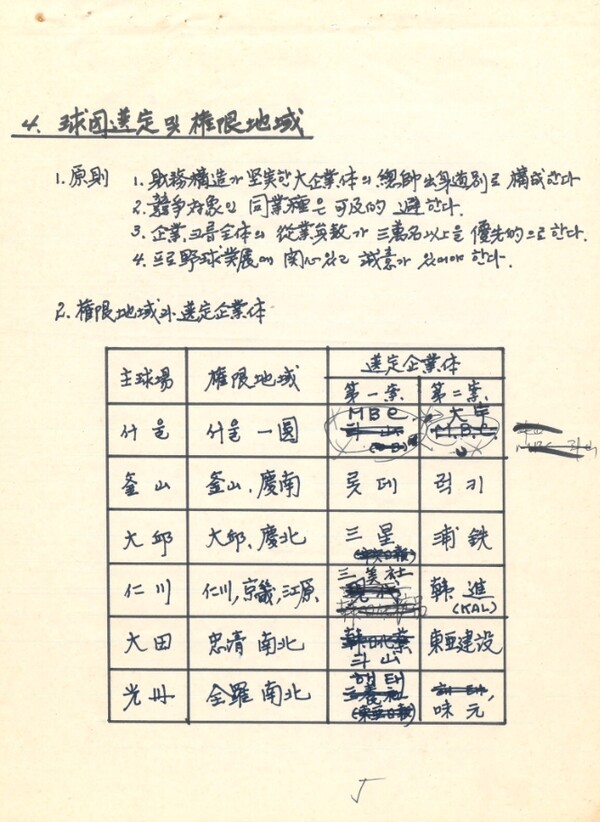 4. 球団選定 및 權限地域
1. 原則 1. 財務構造가 坚実한 大企業体의 總師出身道別로 構成한다
2. 競争対象인 同業種은 可及的 避한다.
3. 企業그룹全体의 從業員数가 三萬名以上을 優先的으로 한다.
4. 프로野球発展에 関心있고 誠意가 있어야 한다.
2. 權限地域과 選定企業体
主球場 權限地域 選定企業体
第一案 第二案
서울 서울 一圓 MBC 大宇
두산 M.B.C.
釜山 釜山, 慶南 롯데 럭키
大邱 大邱, 慶北 三星 浦鉄
(中央日報)
仁川 仁川, 京畿, 江原 三美社 韓進
(KAL)
大田 忠清 南北 斗山 東亜建設
光州 全羅 南北 해태 해태,
三養社 味元
(東亜日報)
5